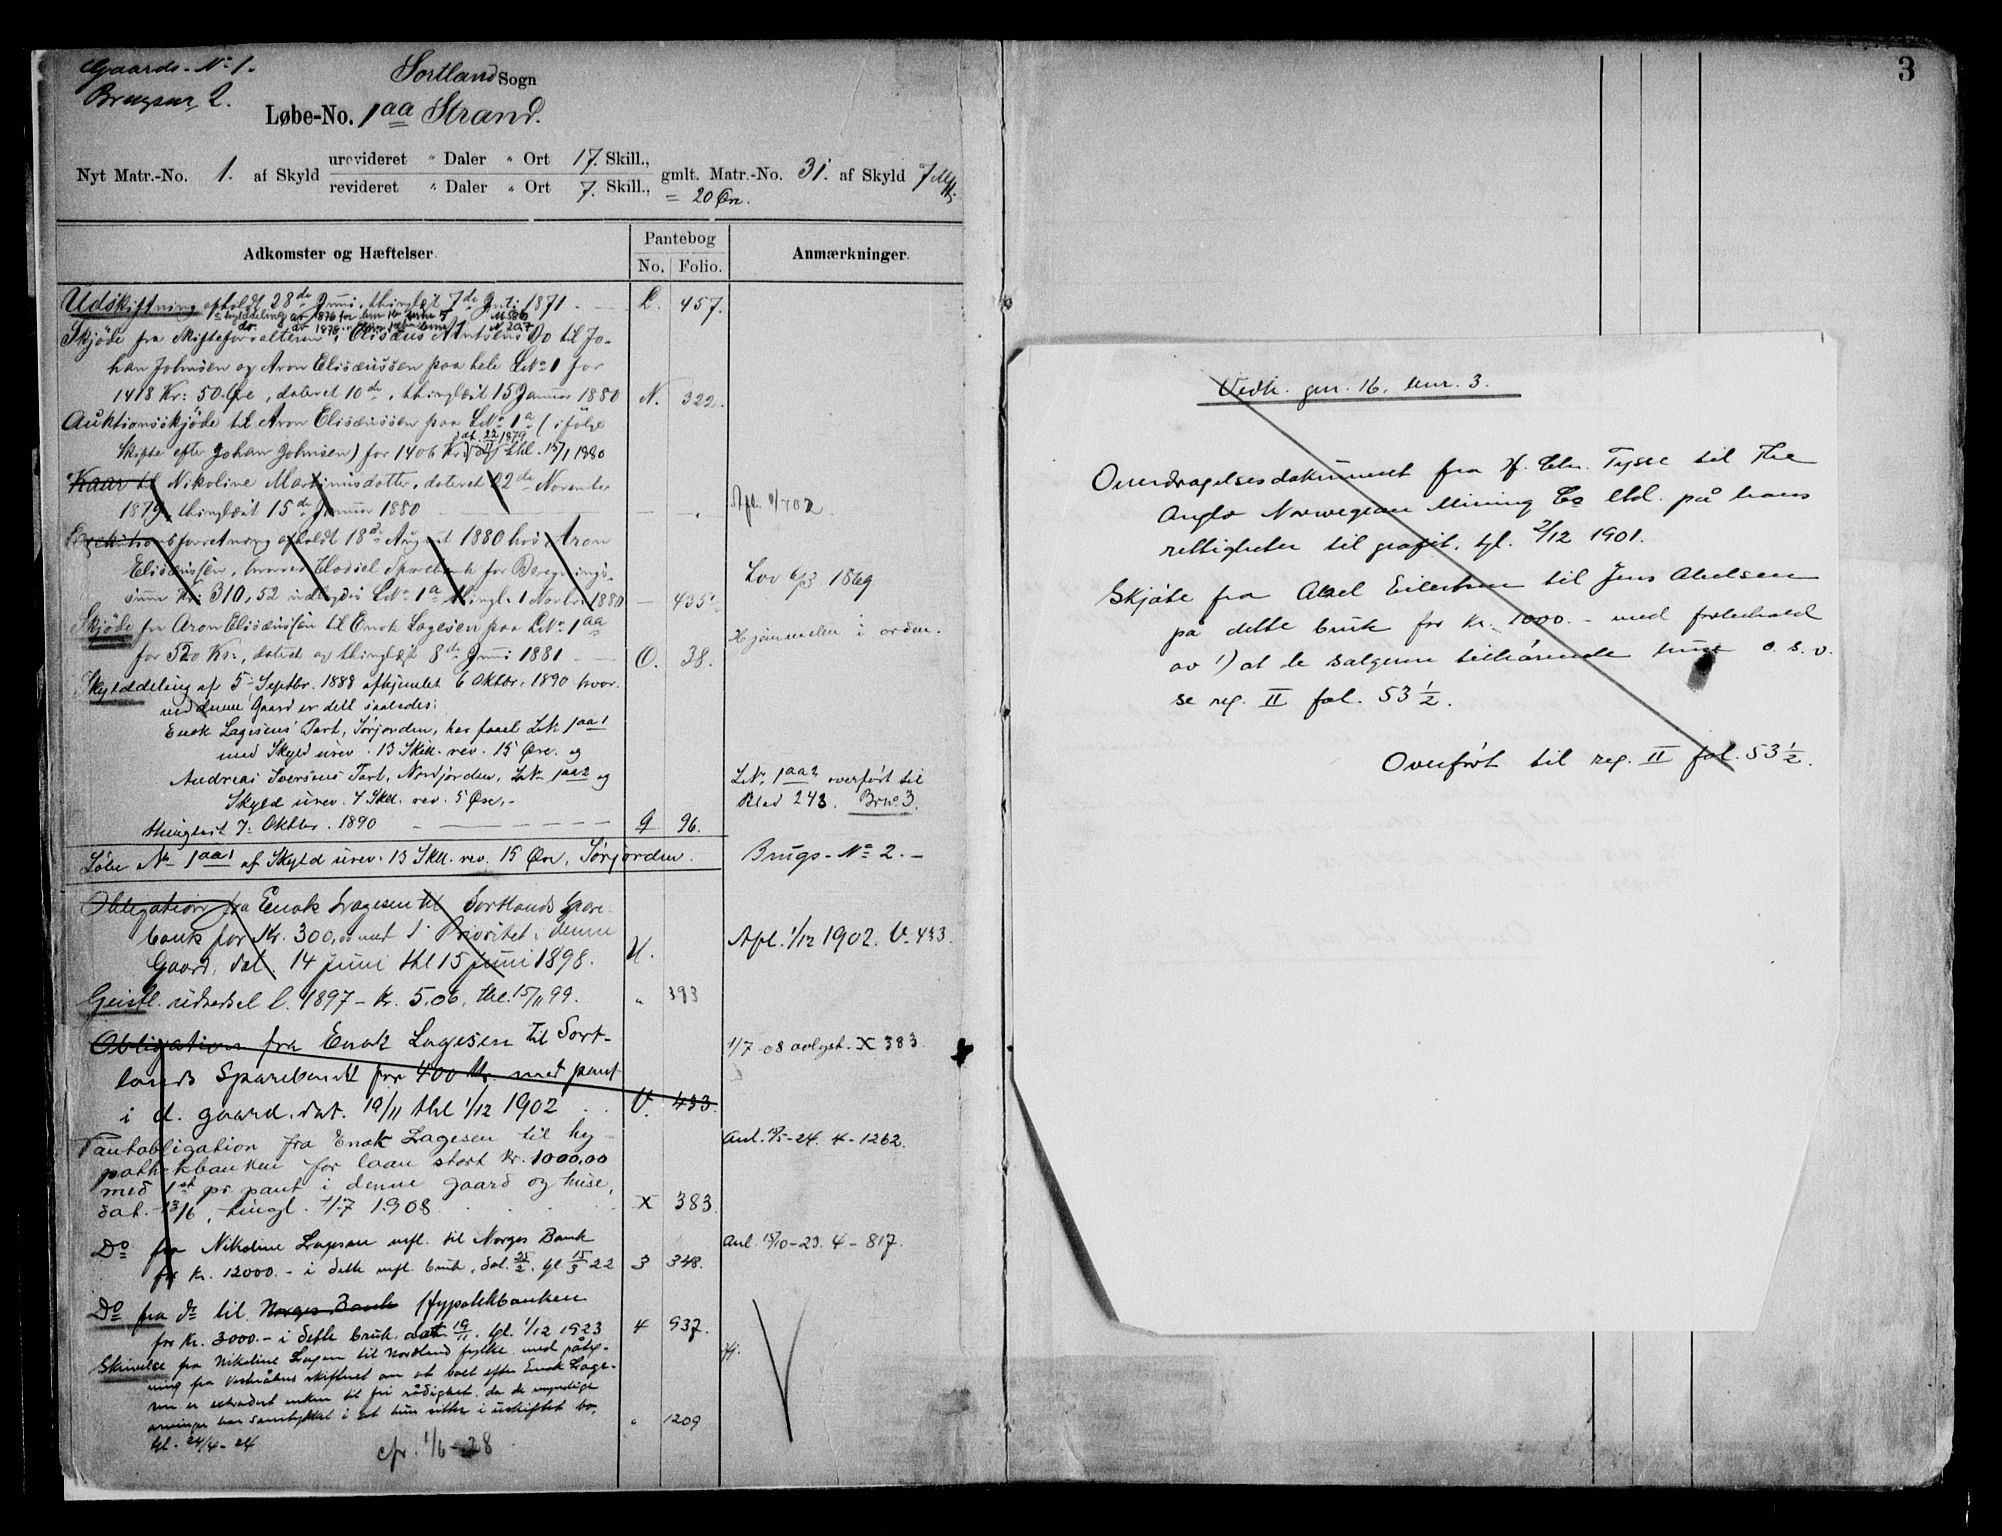 Gaards-No 1.
Brugsnr. 2.
Sortland Sogn
Løbe-No. 1aa Strand.
Nyt Matr.-No. 1. af Skyld urevideret " Daler " Ort 17. Skill., revideret " Daler " Ort 7. Skill., gmlt. Matr.-No. 31. af Skyld
= 20 Øre.
Adkomster og Hæftelser.
Pantebog
No. Folio.
Anmærkninger.
Udskiftning afholdt 28de Juni, thinglæst 7de 1871 L. 457.
Skjøde fra Skifteforvalteren i Elisæus Bo til Jo-
han Johnsen og Aron Elisæussen paa hele LNo 1 for
1418 Kr: 50 Øre, dateret 10de, thinglæst 15 Januar 1880 N. 322.
Auktionsskjøde til Aron Elisæussen paa LNo 1a (ifølge
Skifte efter Johan Johnsen) for 1406 Kr. thl. 15/1 1880
Kaar til Nikoline Martinusdatter, dateret 22de November
1879, thinglæst 15de Januar 1880
Execitionsforretning afholdt 18de August 1880 hos Aron
Elisæussen, hvorved Hadsel Sparebank for Beregnings-
sum Kr: 310,52 udlagdes LNo 1a thingl. 1 Novbr. 1880 — 435
Lov 6/3 1869
Skjøde fra Aron Elisæussen til Enok Lagesen paa LNo 1aa
for 520 Kr:, dateret og thinglæst 8de Juni 1881 O. 38.
Hjemmelen i orden.
Skylddeling af 5 Septbr. 1888 afhjemlet 6 Oktbr. 1890 hvor-
ved denne Gaard er delt saaledes:
Enok Lagesens Part, Sørjorden, har faaet LNo 1aa1
med Skyld urev. 13 Skill. rev. 15 Øre. og
Andreas Iversens Part, Nordjorden, LNo 1aa2 og
Skyld urev. 4 Skill. rev. 5 Øre,-
thinglæst 7. Oktbr. 1890 Q 96.
LNo 1aa2 overført til
Blad 243. Brno 3.
Løbe No 1aa1 af Skyld urev. 13 Skill. rev. 15 Øre, Sørjorden.
Brugs-No 2.-
Obligation fra Enok Lagesen til Sortlands Spare-
bank for Kr. 300,00 med 1. Prioritet i denne
Gaard, dat. 14 Juni thl 15 Juni 1898. U.
Afl. 1/12 1902. V. 433.
Geistl. udsædsel l. 1897 - Kr. 5.06. thl. 15/11 99. " 393
Obligation fra Enok Lagesen til Sort-
lands Sparebank for 400 Kr. med pant
i d. gaard. dat. 19/11 thl 1/12 1902 V. 433.
1/7-08 avlyst. X 383.
Pantobligation fra Enok Lagesen til hy-
pothekbanken for laan stort Kr. 1000,00
med 1st pr pant i denne gaard og huse,
dat. 13/6, tingl. 1/7 1908 X 383.
Avl. 4-1262.
Do fra Nikoline Lagesen mfl. til Norges Bank
for Kr. 12000.- i dette mfl. bruk, dat. 25/2. tgl 15/3 22 3 348.
Avl. 4-817.
Do fra do til Norges Bank Hypotekbanken
for Kr. 3000.- i dette bruk. dat. 19/11. tgl. 1/12 1923 4 937.
Skrivelse fra Nikoline Lagesen til Nordland fylke med påteg-
ning fra Vesteråkens skifteret om at boet efter Enok Lage-
sen er extradert enken til fri rådighet, da de myndige
arvinger har samtykket i at hun sitter i uskiftet bo,
tgl. 24/4-24 " 1209
cfr. 1/6-28
3
Vedk. gnr. 16. bnr. 3.
Overdragelsesdokument fra H. Chr. Tysse til The
Anglo Norwegian Mining Co Ltd. på hans
rettigheter til grafit, tgl. 2/12 1901.
Skjøte fra Aksel Eilertsen til Jens Abelsen
på dette bruk for Kr. 1000.- med forbehold
av 1) at de selgerne tilhørende huse o. s. v.
se reg. II fol. 53 1/2.
Overført til reg. II fol. 53 1/2.